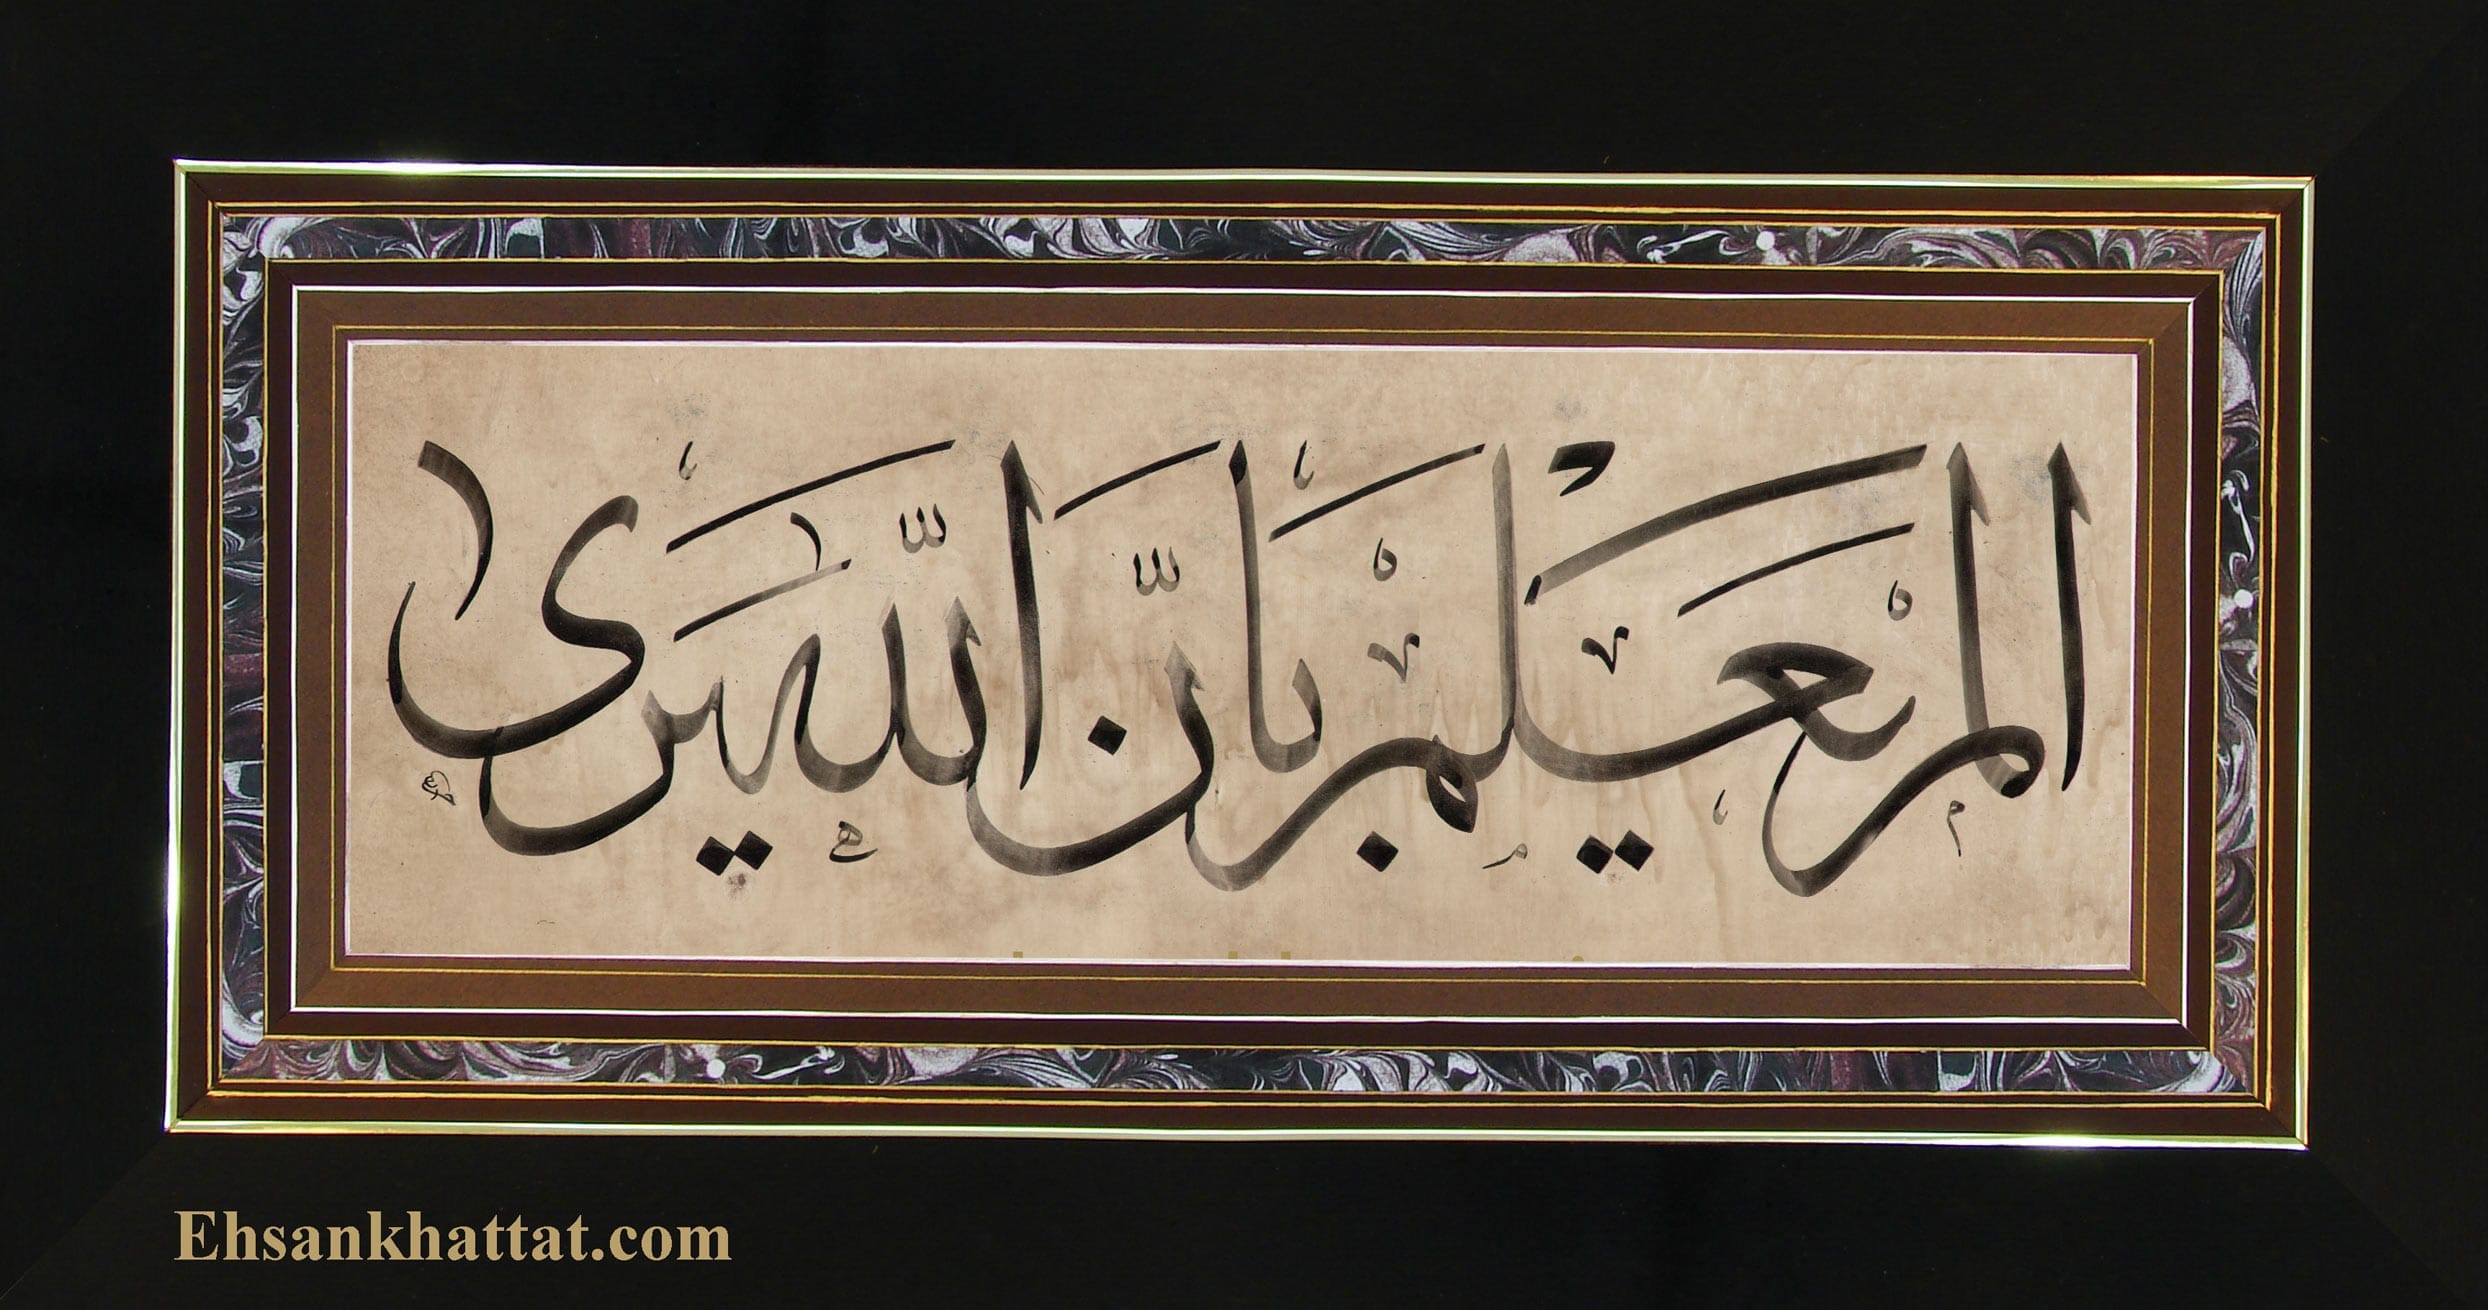 أَلَمْ يَعْلَمْ بِأَنَّ اللَّهَ يَرَىٰ
Ehsankhattat.com